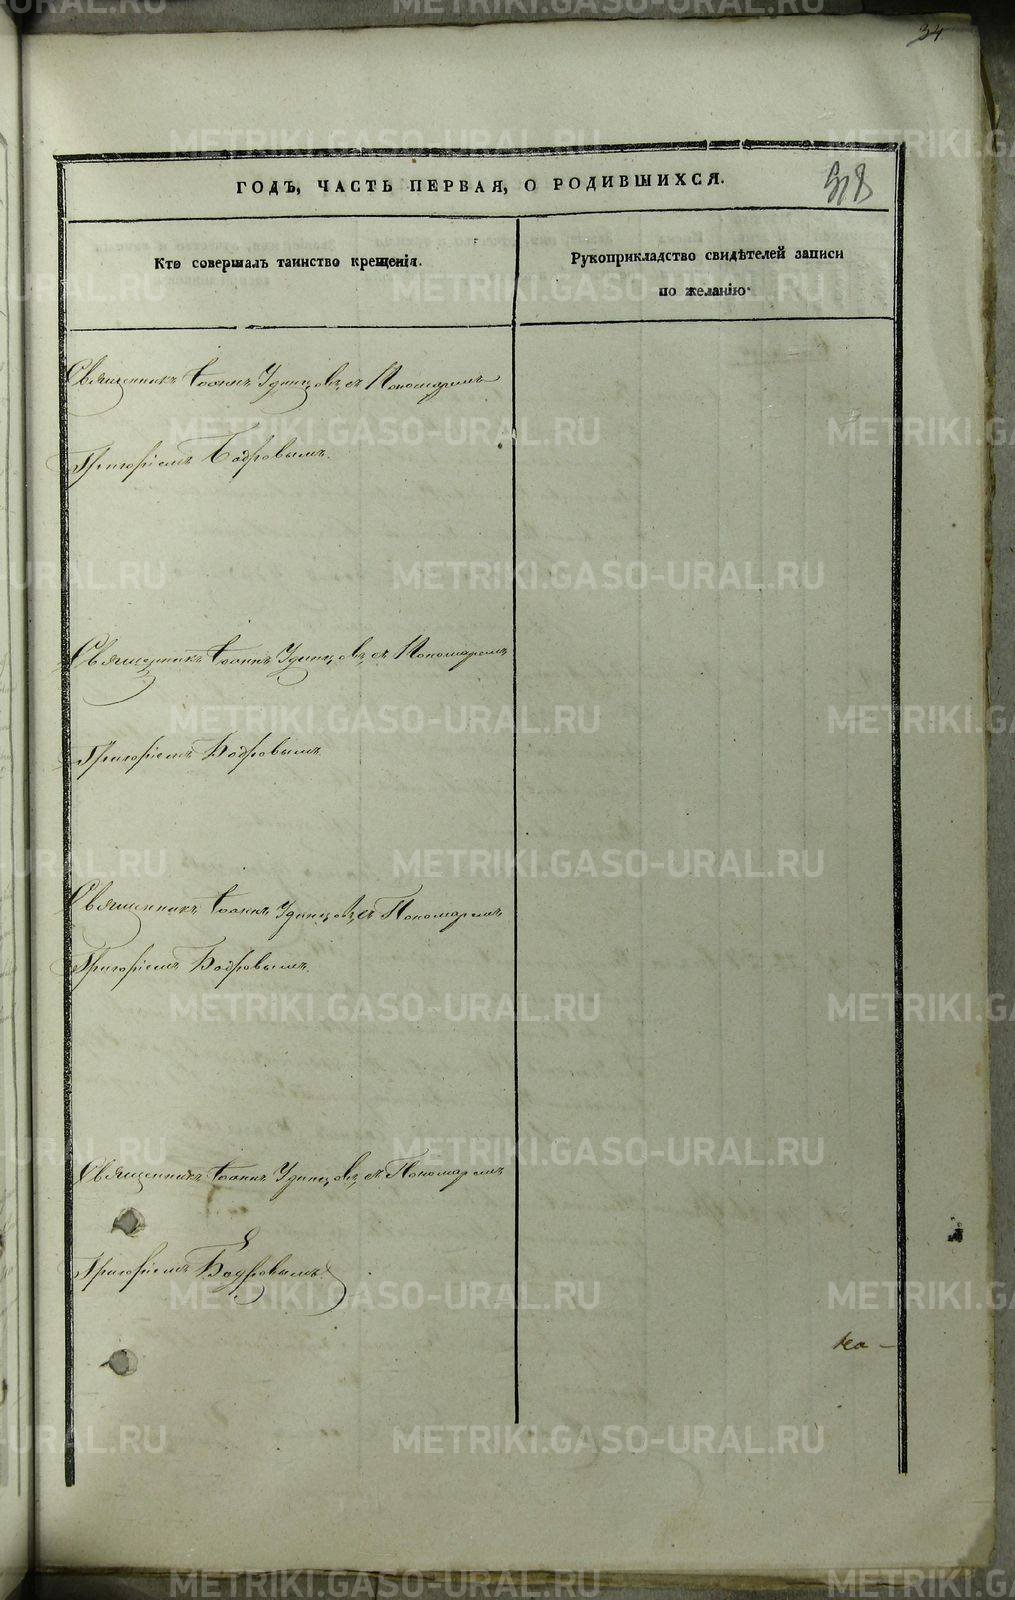 34
ГОДЪ, ЧАСТЬ ПЕРВАЯ, О РОДИВШИХСЯ.
Кто совершалъ таинство крещенія.
Рукоприкладство свидѣтелей записи
по желанію.
Священникъ Іоаннъ Удинцовъ, съ Пономаремъ
Григоріемъ Бодровымъ.
Священникъ Іоаннъ Удинцовъ, съ Пономаремъ
Григоріемъ Бодровымъ
Священникъ Іоаннъ Удинцовъ, съ Пономаремъ
Григоріемъ Бодровымъ.
Священникъ Іоаннъ Удинцовъ, съ Пономаремъ
Григоріемъ Бодровымъ.
ка-
METRIKI.GASO-URAL.RU